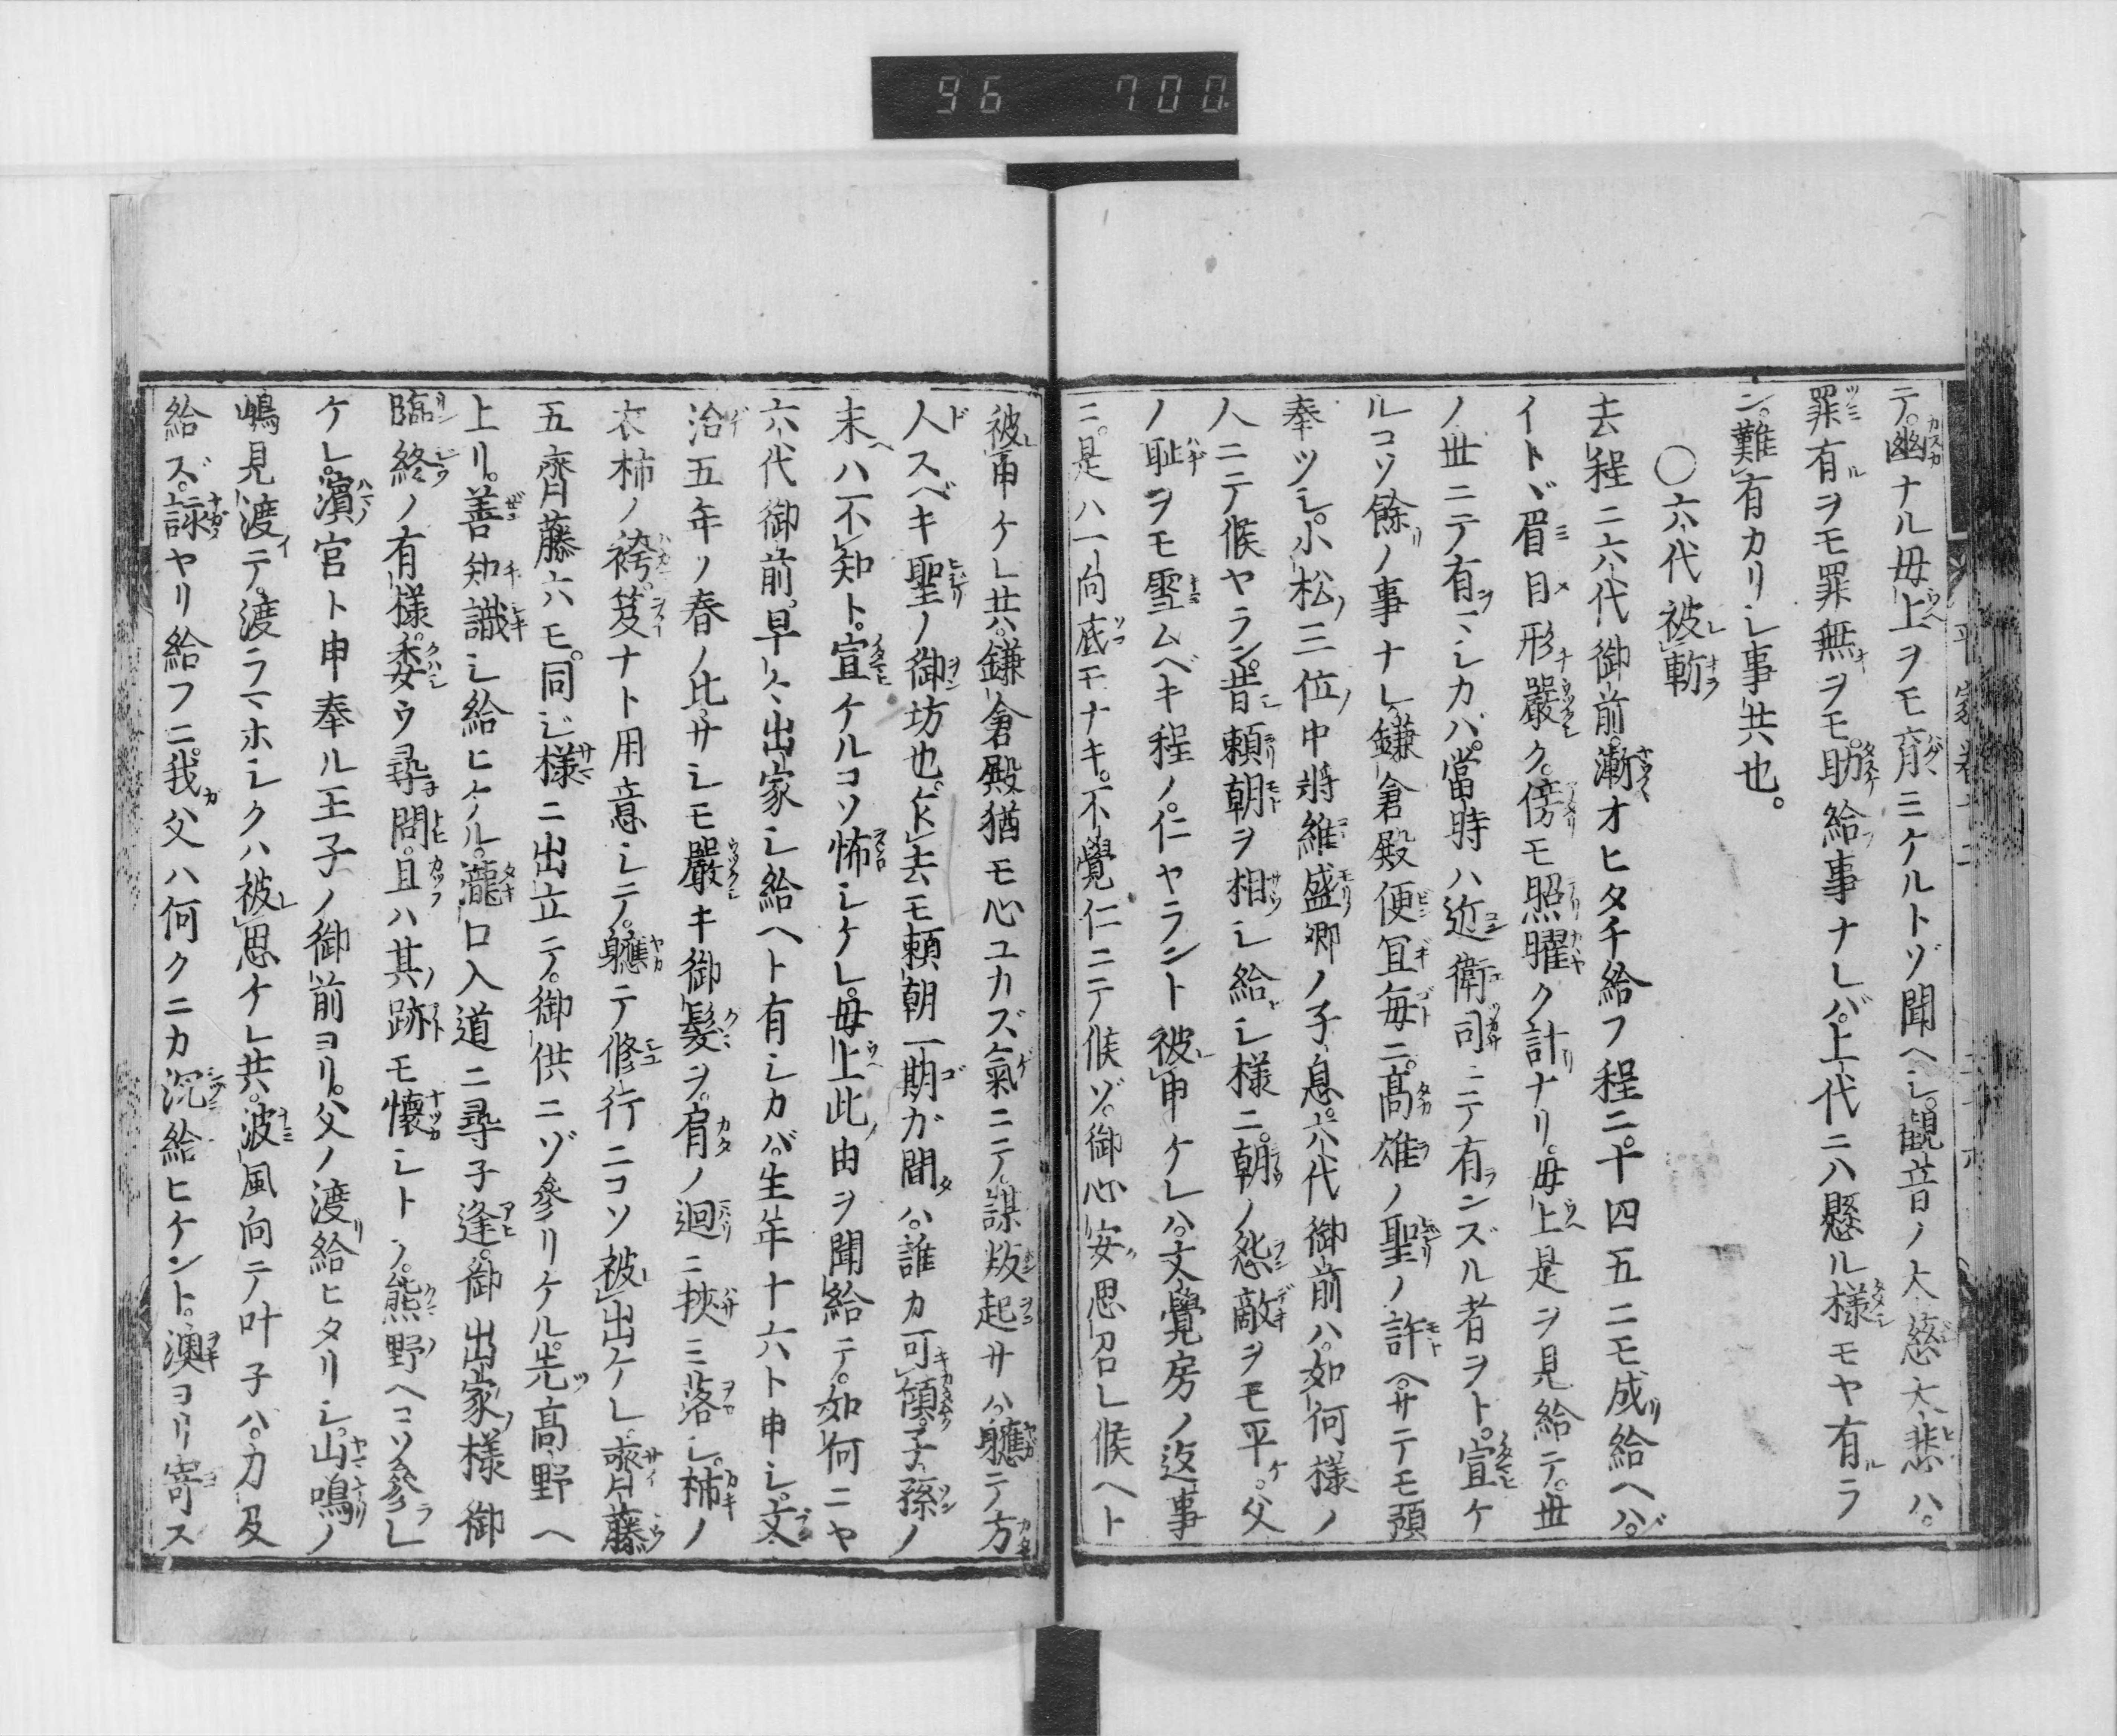 96 700
テ。幽ナル母上ヲモ育ミケルトゾ聞ヘシ。観音ノ大慈大悲ハ。
罪有ヲモ罪無ヲモ。助給事ナレバ。上代ニハ懸ル様モヤ有ラ
ン。難有カリシ事共也。
〇六代被斬
去程ニ六代御前。漸オヒタチ給フ程ニ。十四五ニモ成給ヘハ。
イトヾ眉目形嚴ク。傍モ照曜ク計ナリ。母上是ヲ見給テ。世
ノ世ニテ有マシカバ。當時ハ近衛司ニテ有ンズル者ヲト。宣ケ
ルコソ餘ノ事ナレ。鎌倉殿便宜毎ニ。高雄ノ聖ノ許ヘ。サテモ預
奉ツシ。小松三位中將維盛卿ノ子息。六代御前ハ。如何様ノ
人ニテ候ヤラン。昔頼朝ヲ相シ給シ様ニ。朝ノ怨敵ヲモ平ケ。父
ノ恥ヲモ雪ムベキ程ノ。仁ヤラント被申ケレハ。文覺房ノ返事
ニ。是ハ一向底モナキ。不覺仁ニテ候ゾ。御心安思召レ候ヘト
被申ケレ共。鎌倉殿猶モ心ユカズ氣ニテ。謀叛起サハ。軈テ方
人スベキ聖ノ御坊也。但去モ頼朝一期ガ間ハ。誰カ可傾。子孫ノ
末ハ不知ト。宣ケルコソ怖シケレ。母上此由ヲ聞給テ。如何ニヤ
六代御前。早々出家シ給ヘト有シカバ。生年十六ト申シ。文
治五年ノ春ノ比。サシモ嚴キ御髪ヲ。肩ノ迴ニ挾ミ落シ。柿ノ
衣柿ノ袴。笈ナト用意シテ。軈テ修行ニコソ被出ケレ。齋藤
五齋藤六モ。同シ様ニ出立テ。御供ニゾ參リケル。先高野ヘ
上リ。善知識シ給ヒケル。瀧口入道ニ尋子逢。御出家ノ様御
臨終ノ有様。委ウ尋問。且ハ其跡モ懷シトテ。熊野ヘコソ參レ
ケレ。濱宮ト申奉ル王子ノ御前ヨリ。父ノ渡給ヒタリシ。山鳴ノ
嶋見渡テ。渡ラマホシクハ被思ケレ共。波風向テ叶子ハ。力及
給ズ。詠ヤリ給フニ。我父ハ何クニカ沉給ヒケント。澳ヨリ寄ス